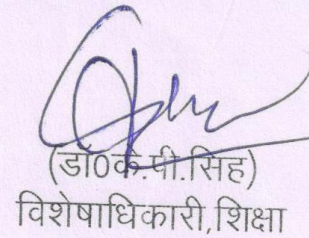 (डा0के.पी.सिंह)
विशेषाधिकारी,शिक्षा